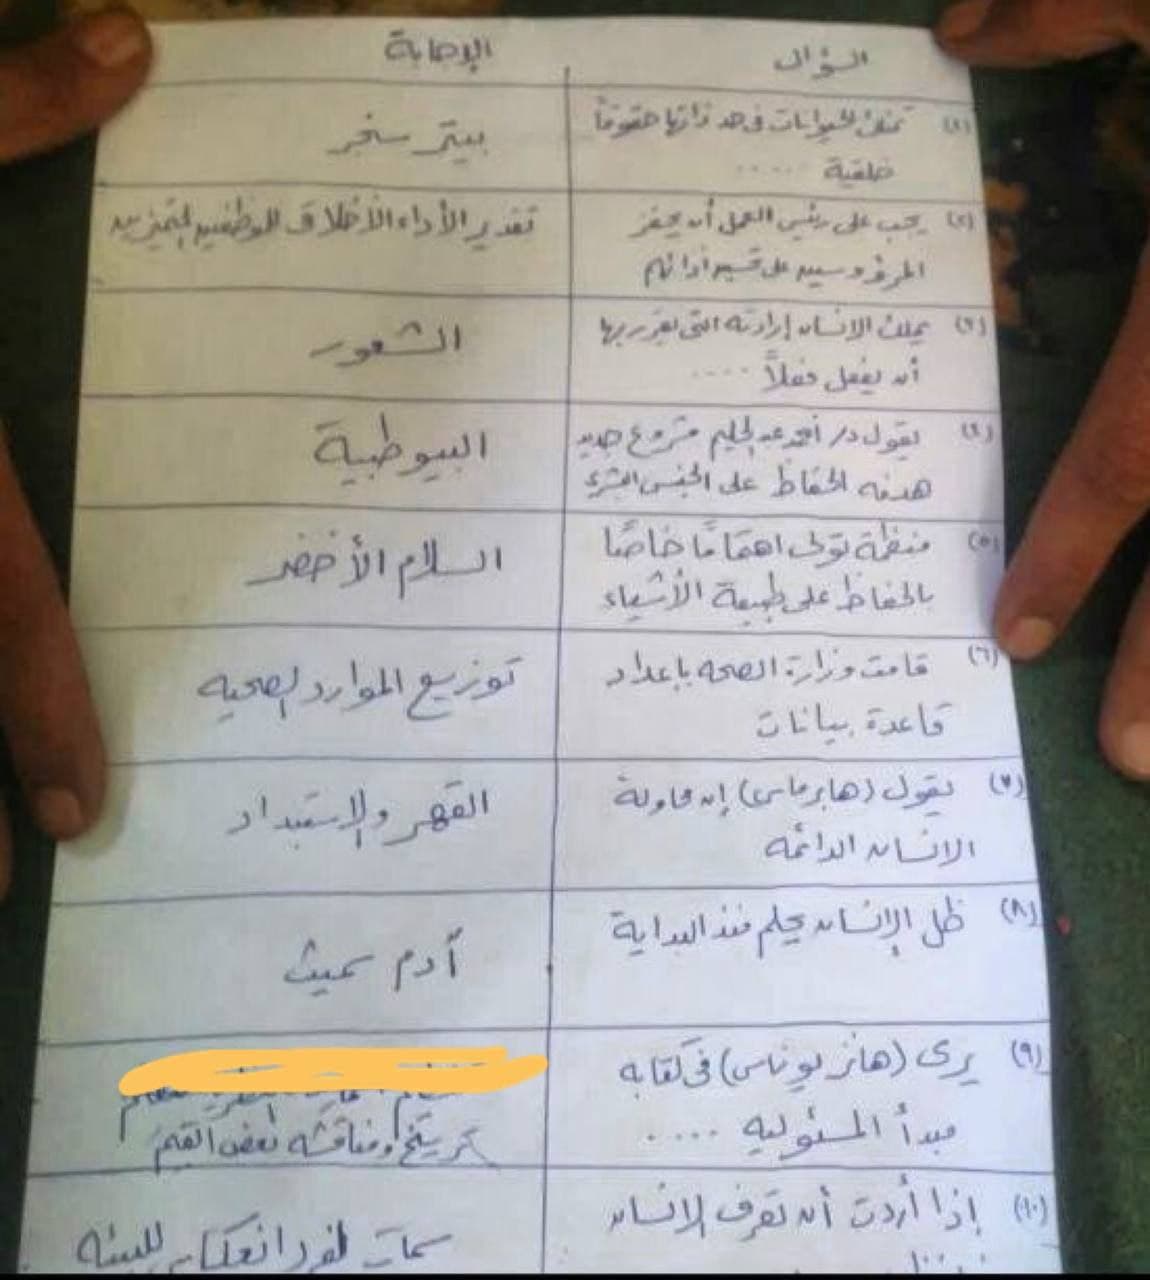 السؤال
الإجابة
(١) تمتلك الحيوانات فى حد ذاتها حقوقاً
خلقية .....
بيتر سنجر
(٢) يجب على رئيس العمل أن يحفز
المرؤوسين على تحسين أدائهم
تقدير الأداء الأخلاقى للموظفين المتميزين
(٣) يملك الإنسان إرادته التى يقرر بها
أن يفعل فعلاً ....
الشعور
(٤) يقول د/ أحمد عبدالحليم مشروع جديد
هدفه الحفاظ على الجنس البشرى
البيوطبية
(٥) منظمة تولى اهتمامًا خاصًا
بالحفاظ على طبيعة الأشياء
السلام الأخضر
(٦) قامت وزارة الصحه بإعداد
قاعدة بيانات
توزيع الموارد الصحيه
(٧) يقول (هابرماس) إن محاولة
الانسان الدائمه
القهر والاستبداد
(٨) ظل الإنسان يحلم منذ البداية
آدم سميث
(٩) يرى (هانز يوناس) فى كتابه
مبدأ المسئوليه .....
ومناقشه بعض القيم
(١٠) إذا أردت أن تعرف الانسان
سمات الفرد انعكاس للبيئه